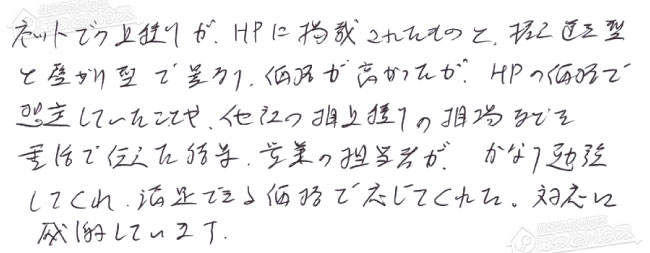 ネットでの見積りが、HPに掲載されたものと、据え置き型
と壁かけ型で異なり、価格が高かったが、HPの価格で
想定していたことや、他社の相見積りの相場などを
電話で伝えた結果、営業の担当者が、かなり勉強
してくれ、満足できる価格で応じてくれた。対応に
感謝しています。